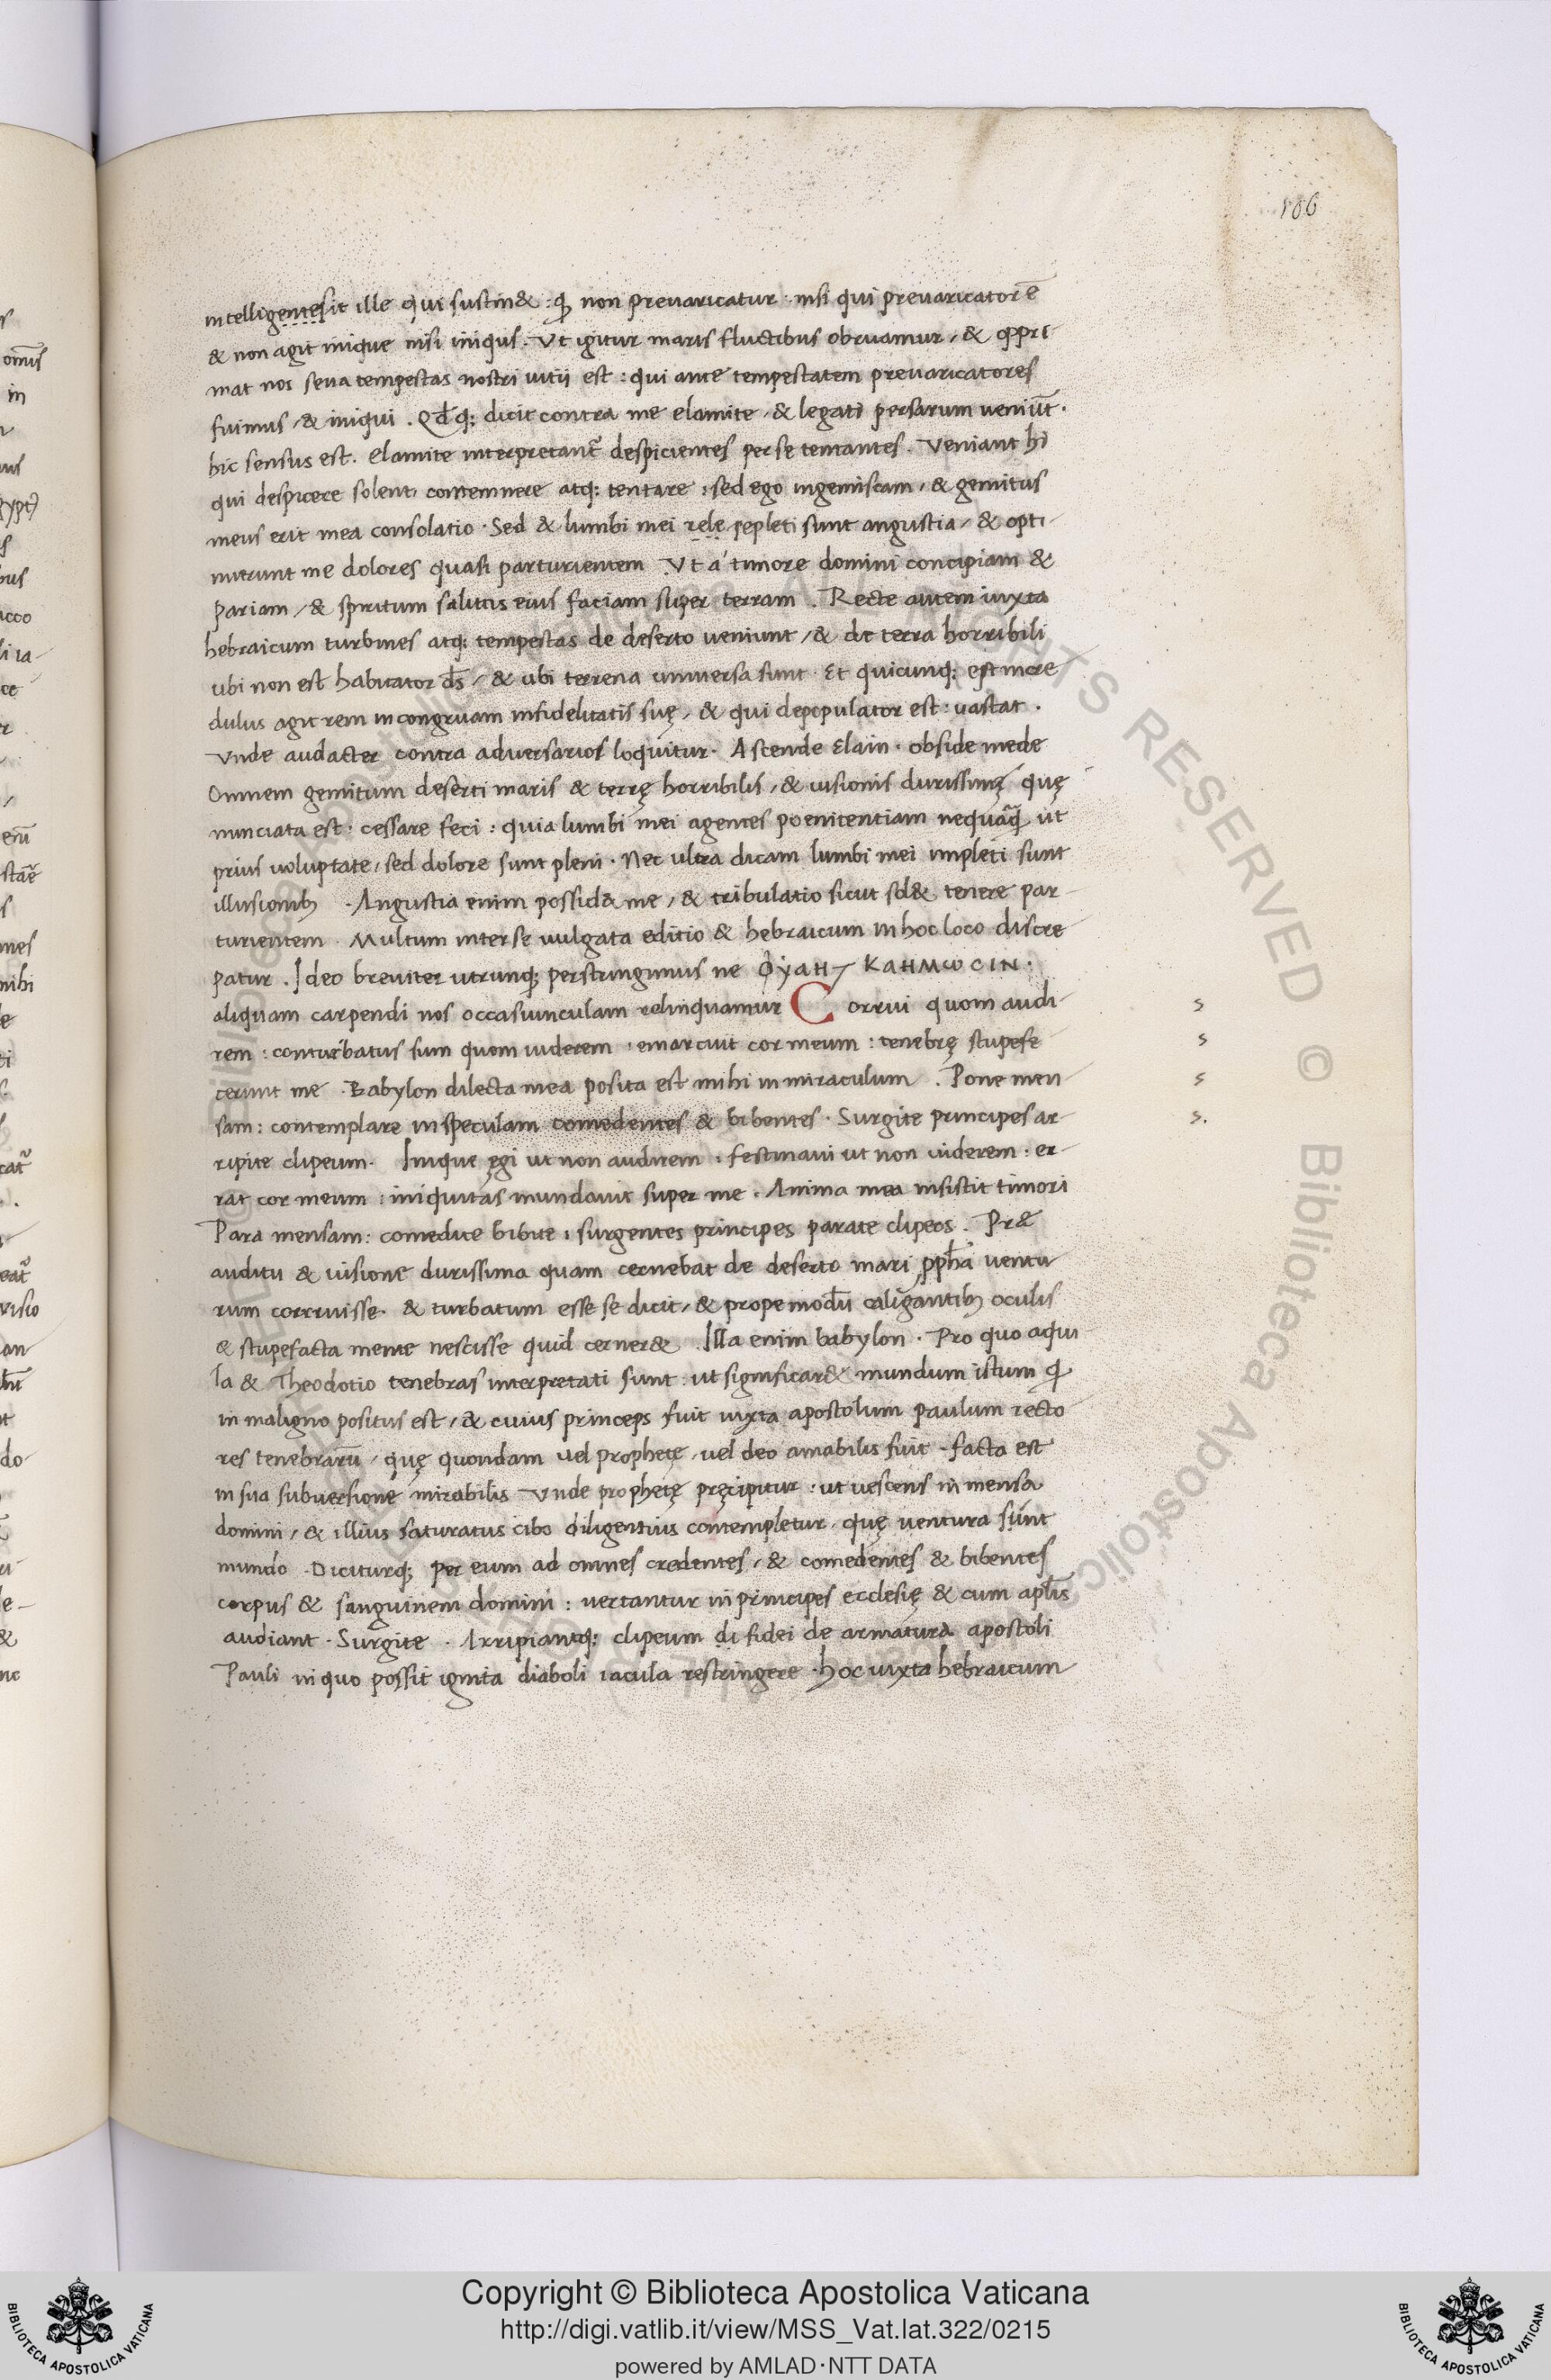 106
intelligentesit ille qui sustin& : ꝙ non prevaricatur · nisi qui prevaricatorē
& non agit inique nisi iniqus . Vt igitur maris fluctibus obruamur / & oppri-
mat nos seva tempestas nostri vitii est : qui ante tempestatem prevaricatores
fuimus / & iniqui . Qđq; dicit contra me elamite / & legati persarum veniūt .
hic sensus est . elamite interpretant̃ despicientes perse tentantes . Veniant hi
qui despicere solent / contemnere atq; tentare : sed ego ingemiscam / & gemitus
meus erit mea consolatio · Sed & lumbi mei rele repleti sunt angustia / & opti-
nuerunt me dolores quasi parturientem . Vt á timore domini concipiam &
pariam / & spiritum salutis eius faciam super terram . Recte autem iuxta
hebraicum turbines atq; tempestas de deserto veniunt / & de terra horribili
ubi non est habitator d̄s / & ubi terrena universa sunt . Et quicunq; est incre
dulus agit rem incongruam infidelitatis suę / & qui depopulator est : vastat .
Vnde audacter contra adversarios loquitur . Ascende Elam · obside mede
Omnem gemitum deserti maris & terrę horribilis / & visionis durissimę quę
nunciata est : cessare feci : quia lumbi mei agentes poenitentiam nequāꝙ ut
prius voluptate / sed dolore sunt pleni . Nec ultra dicam lumbi mei impleti sunt
illusionib; . Angustia enim possid& me / & tribulatio sicut sol& tenere par-
turientem . Multum inter se vulgata editio & hebraicum in hoc loco discre
patur . Ideo breviter utrunq; perstringimus ne
aliquam carpendi nos occasiunculam relinquamur Corrui quom audi- s
rem : conturbatus sum quom viderem : emarcuit cor meum : tenebrę stupefe s
cerunt me . Babylon dilecta mea posita est mihi in miraculum . Pone men s
sam : contemplare in speculam comedentes & bibentes . Surgite principes ar- s.
ripite clipeum . Inique ęgi ut non audirem : festinavi ut non viderem : er-
rat cor meum : iniquitas mundavit super me . Anima mea insistit timori
Para mensam : comedite bibite : surgentes principes parate clipeos . Prę
auditu & visione durissima quam cernebat de deserto mari ꝓph̄a ventu
rum corruisse . & turbatum esse se dicit / & prope modū caligantib; oculis
& stupefacta mente nescisse quid cerner& . Illa enim babylon . Pro quo aqui
la & Theodotio tenebras interpretati sunt : ut significar& mundum istum ꝙ
in maligno positus est / & cuius princeps fuit iuxta apostolum paulum recto
res tenebrarū / quę quondam vel prophetę / vel deo amabilis fuit - facta est
in sua subversione mirabilis Vnde prophetę pręcipitur : ut vescens in mensa
domini / & illius saturatus cibo diligentius contempletur / quę ventura sunt
mundo . Diciturq; per eum ad omnes credentes / & comedentes & bibentes
corpus & sanguinem domini : vertantur in principes ecclesię & cum apl̄is
audiant . Surgite . Arripiantq; clipeum di fidei de armatura apostoli
Pauli in quo possit ignita diaboli iacula restringere . hoc iuxta hebraicum
Copyright © Biblioteca Apostolica Vaticana
http://digi.vatlib.it/view/MSS_Vat.lat.322/0215
powered by AMLAD·NTT DATA